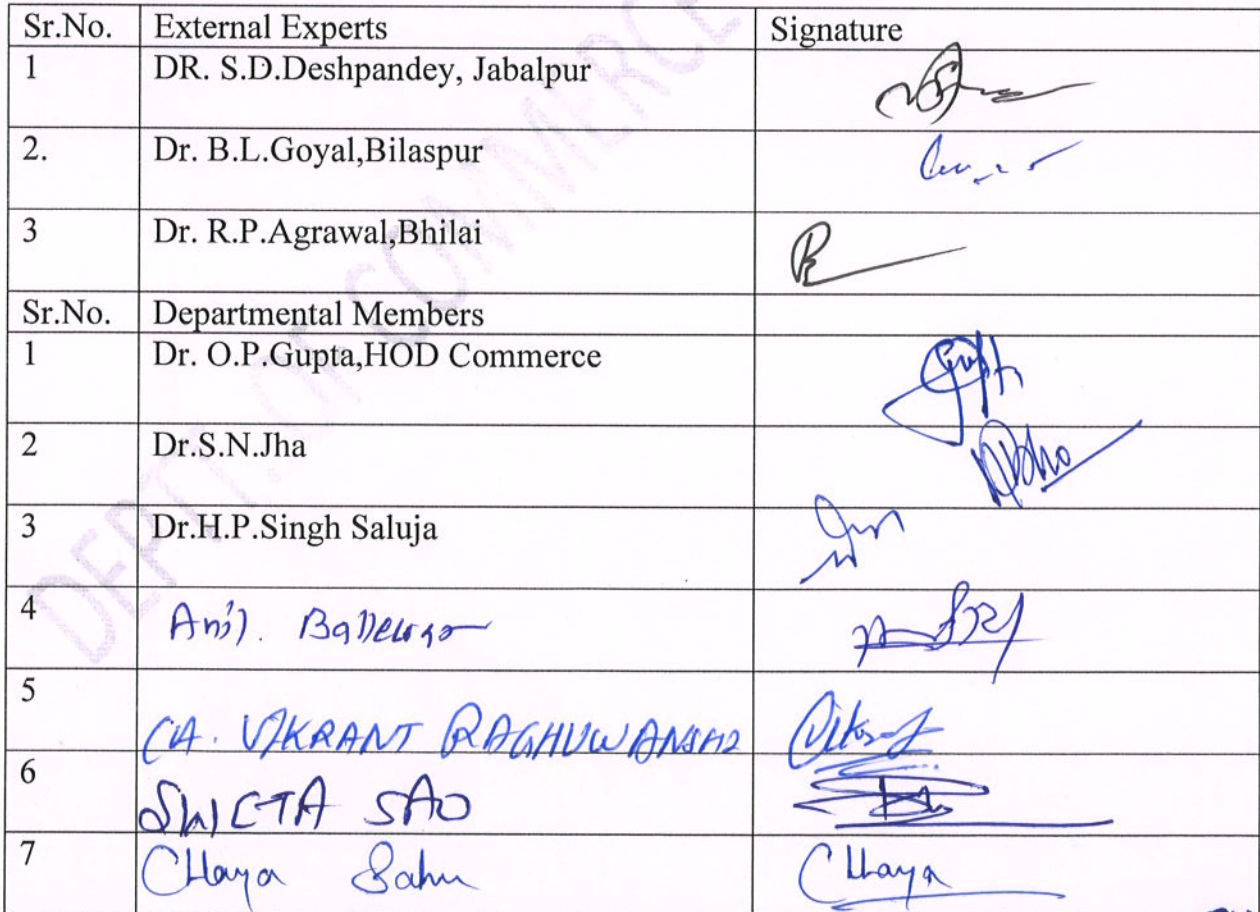 Sr.No. External Experts Signature
1 DR. S.D.Deshpandey, Jabalpur
2. Dr. B.L.Goyal,Bilaspur
3 Dr. R.P.Agrawal,Bhilai
Sr.No. Departmental Members
1 Dr. O.P.Gupta,HOD Commerce
2 Dr.S.N.Jha
3 Dr.H.P.Singh Saluja
4 Anil.
5 CA. VIKRANT RAGHUWANSHI
6 SWETA SAO
7 CHaya Sahu CHaya
DEPTT. OF COMMERCE